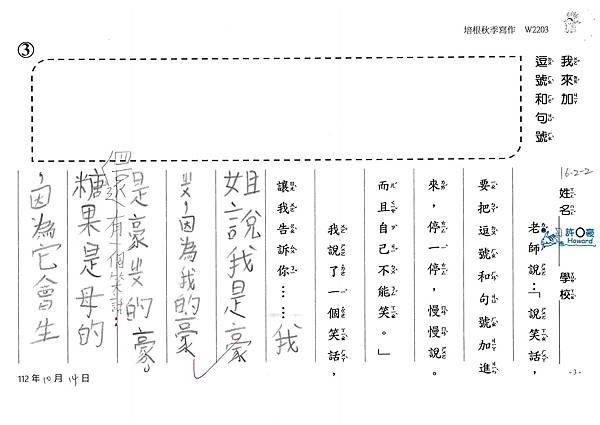 培根秋季寫作 W2203
③
我來加
逗號和句號
16-2-2
姓名
許〇豪
Howard
學校
老師說：「說笑話，
要把逗號和句號加進
來，停一停，慢慢說。
而且自己不能笑。」
我說了一個笑話，
讓我告訴你……我
姐說我是豪
ㄓ，因為我的豪
是豪ㄓ的豪。
還有一個笑話：
糖果是母的
，因為它會生
112年10月14日
-3-